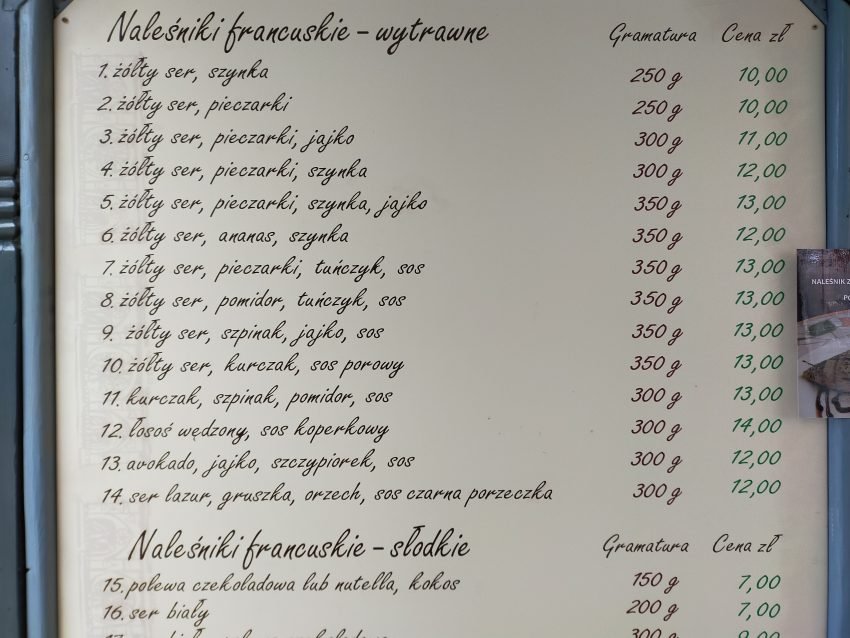 Naleśniki francuskie – wytrawne Gramatura Cena zł
1. żółty ser, szynka 250 g 10,00
2. żółty ser, pieczarki 250 g 10,00
3. żółty ser, pieczarki, jajko 300 g 11,00
4. żółty ser, pieczarki, szynka 300 g 12,00
5. żółty ser, pieczarki, szynka, jajko 350 g 13,00
6. żółty ser, ananas, szynka 350 g 12,00
7. żółty ser, pieczarki, tuńczyk, sos 350 g 13,00
8. żółty ser, pomidor, tuńczyk, sos 350 g 13,00
9. żółty ser, szpinak, jajko, sos 350 g 13,00
10. żółty ser, kurczak, sos porowy 350 g 13,00
11. kurczak, szpinak, pomidor, sos 300 g 13,00
12. łosoś wędzony, sos koperkowy 300 g 14,00
13. avokado, jajko, szczypiorek, sos 300 g 12,00
14. ser lazur, gruszka, orzech, sos czarna porzeczka 300 g 12,00
Naleśniki francuskie – słodkie Gramatura Cena zł
15. polewa czekoladowa lub nutella, kokos 150 g 7,00
16. ser biały 200 g 7,00
NALEŚNIK Z